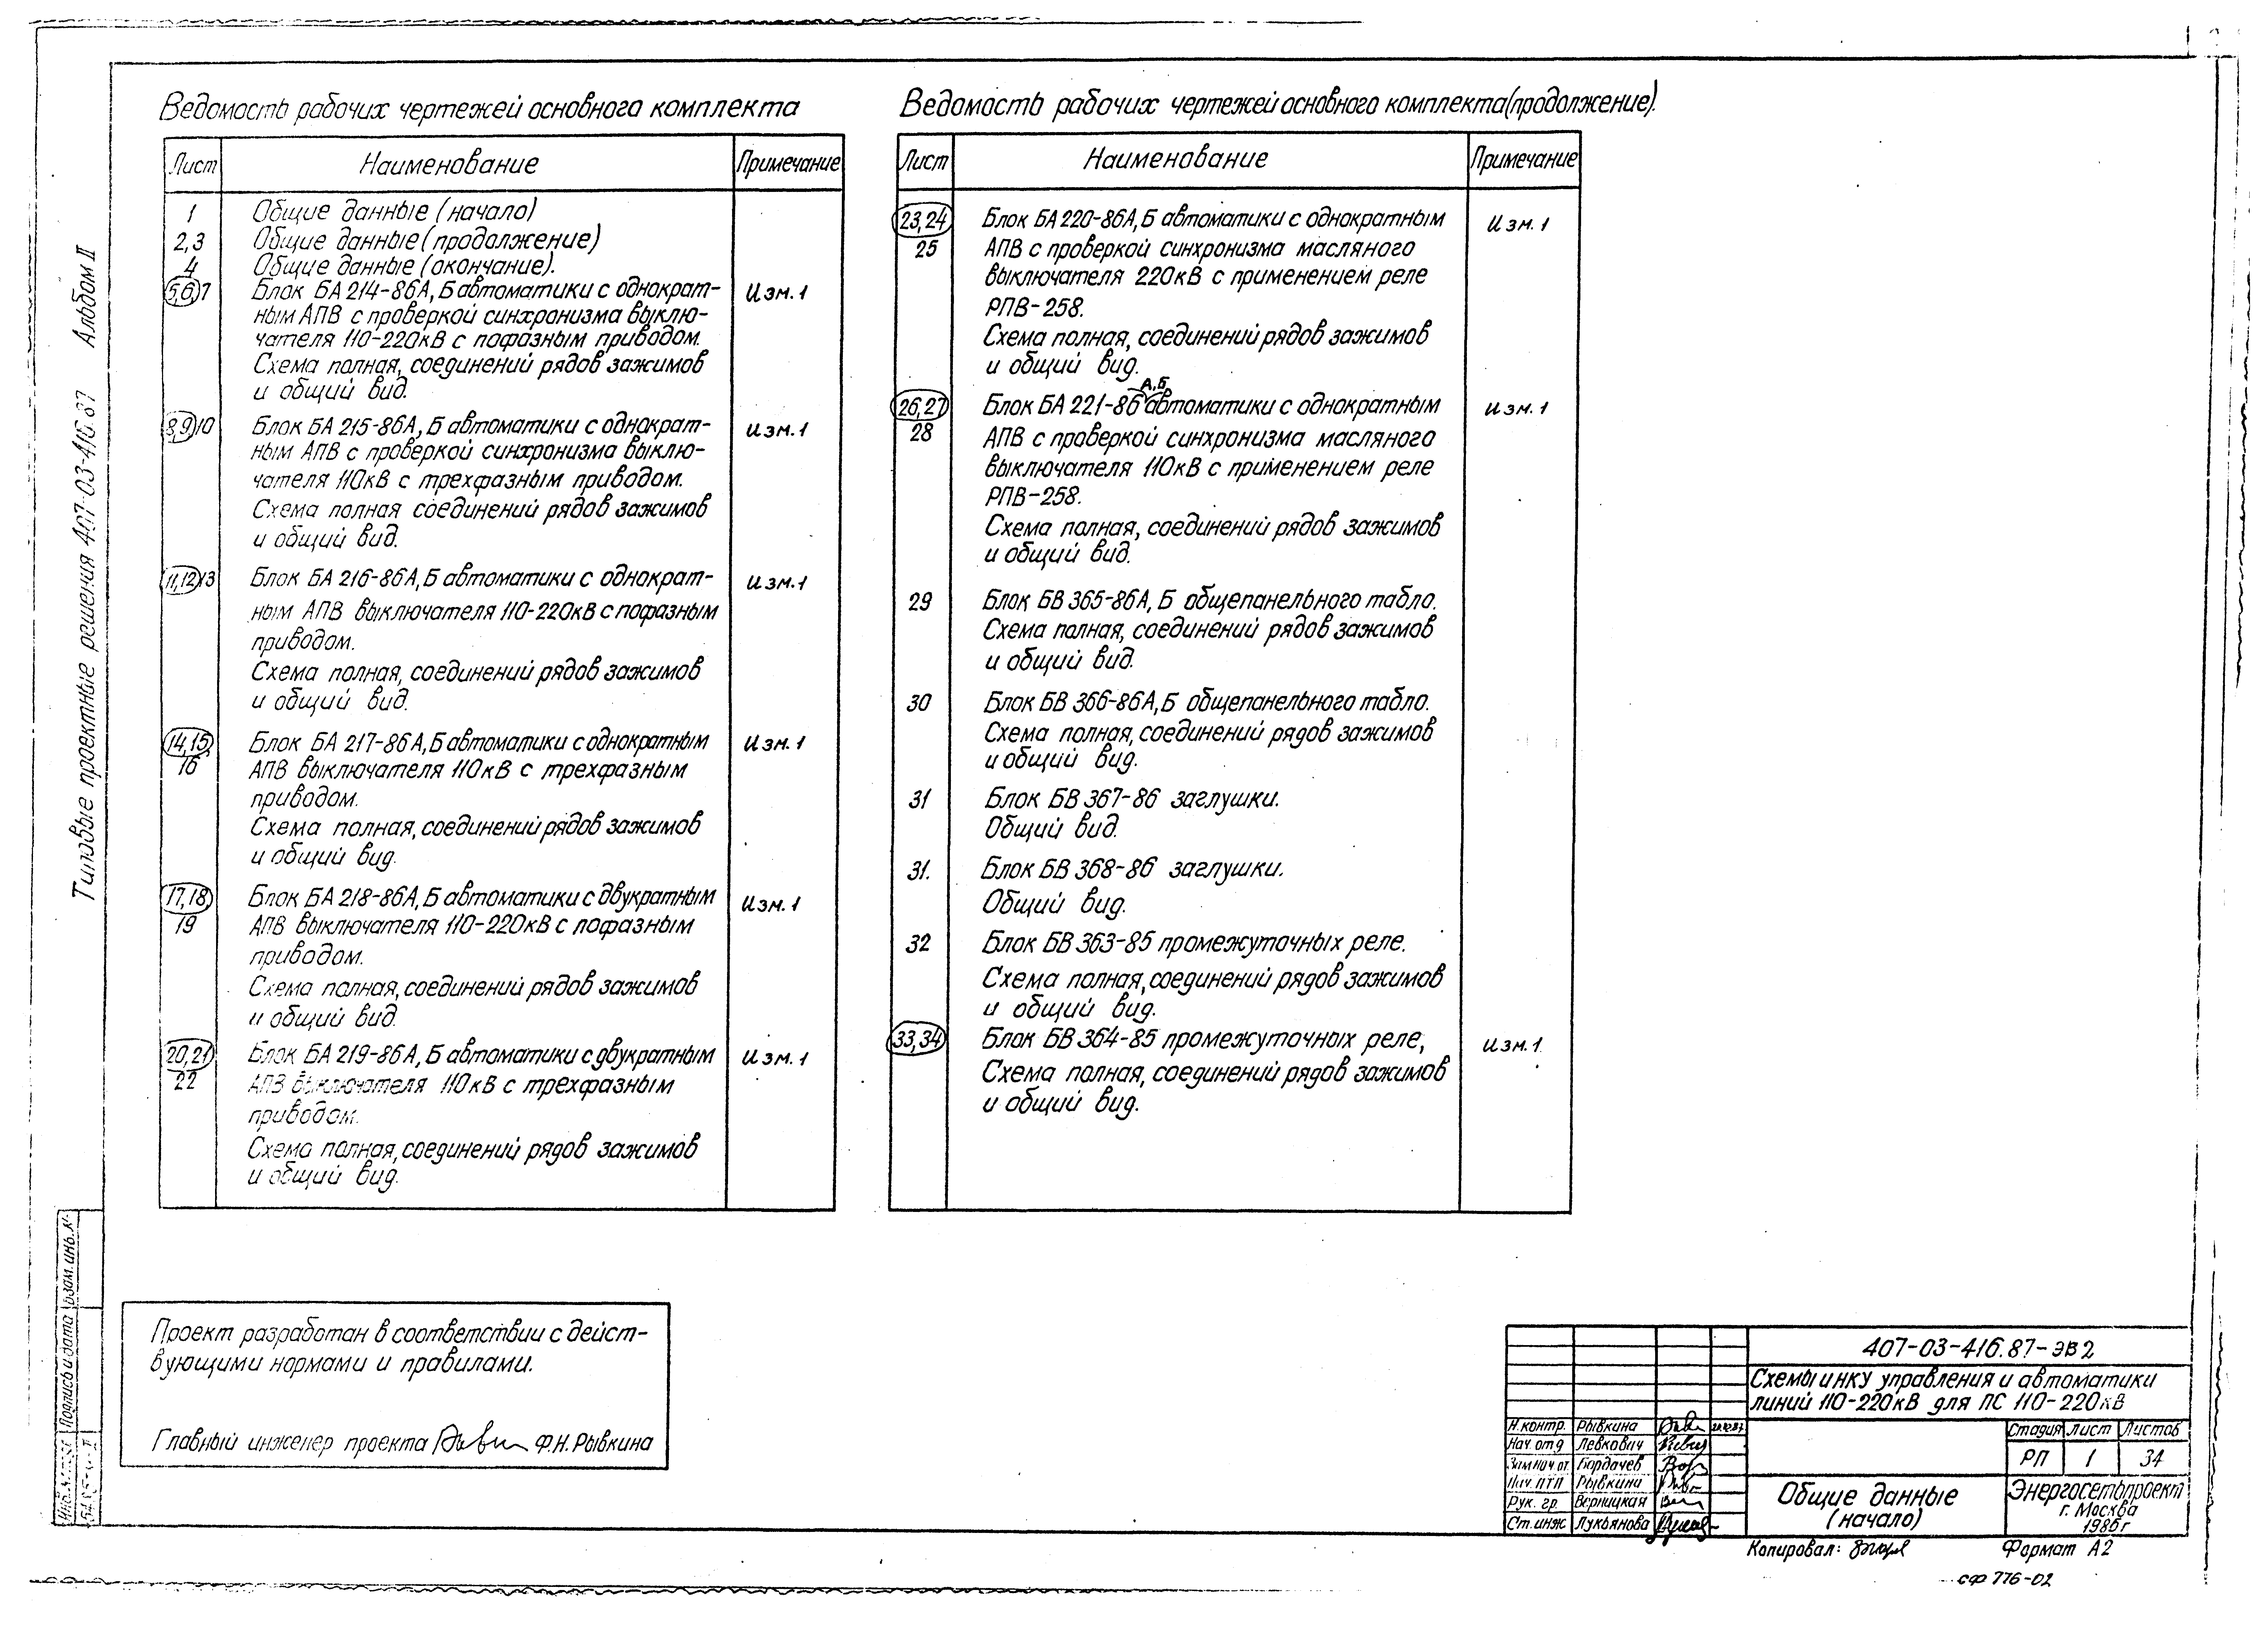 Ведомость рабочих чертежей основного комплекта
Лист Наименование Примечание
1 Общие данные (начало)
2,3 Общие данные (продолжение)
4 Общие данные (окончание).
5,6,7 Блок БА 214-86А, Б автоматики с однократ- Изм. 1
ным АПВ с проверкой синхронизма выклю-
чателя 110-220кВ с пофазным приводом.
Схема полная, соединений рядов зажимов
и общий вид.
8,9,10 Блок БА 215-86А, Б автоматики с однократ- Изм. 1
ным АПВ с проверкой синхронизма выклю-
чателя 110кВ с трехфазным приводом.
Схема полная соединений рядов зажимов
и общий вид.
11,12,13 Блок БА 216-86А, Б автоматики с однократ- Изм. 1
ным АПВ выключателя 110-220кВ с пофазным
приводом.
Схема полная, соединений рядов зажимов
и общий вид.
14,15, Блок БА 217-86А, Б автоматики с однократным Изм. 1
16 АПВ выключателя 110кВ с трехфазным
приводом.
Схема полная, соединений рядов зажимов
и общий вид.
17,18, Блок БА 218-86А, Б автоматики с двукратным Изм. 1
19 АПВ выключателя 110-220кВ с пофазным
приводом.
Схема полная, соединений рядов зажимов
и общий вид.
20,21 Блок БА 219-86А, Б автоматики с двукратным Изм. 1
22 АПВ выключателя 110кВ с трехфазным
приводом.
Схема полная, соединений рядов зажимов
и общий вид.
Ведомость рабочих чертежей основного комплекта (продолжение).
Лист Наименование Примечание
23,24 Блок БА 220-86А, Б автоматики с однократным Изм. 1
25 АПВ с проверкой синхронизма масляного
выключателя 220кВ с применением реле
РПВ-258.
Схема полная, соединений рядов зажимов
и общий вид.
А,Б
26,27 Блок БА 221-86 автоматики с однократным Изм. 1
28 АПВ с проверкой синхронизма масляного
выключателя 110кВ с применением реле
РПВ-258.
Схема полная, соединений рядов зажимов
и общий вид.
29 Блок БВ 365-86А, Б общепанельного табло.
Схема полная, соединений рядов зажимов
и общий вид.
30 Блок БВ 366-86А, Б общепанельного табло.
Схема полная, соединений рядов зажимов
и общий вид.
31 Блок БВ 367-86 заглушки.
Общий вид.
31. Блок БВ 368-86 заглушки.
Общий вид.
32 Блок БВ 363-85 промежуточных реле.
Схема полная, соединений рядов зажимов
и общий вид.
33,34 Блок БВ 364-85 промежуточных реле, Изм. 1
Схема полная, соединений рядов зажимов
и общий вид.
Типовые проектные решения 407-03-416.87 Альбом II
Подпись и дата Взам. инв. №
Проект разработан в соответствии с дейст-
вующими нормами и правилами.
Главный инженер проекта Ф.Н. Рывкина
407-03-416.87-ЭВ2
Схемы и НКУ управления и автоматики
линий 110-220кВ для ПС 110-220кВ
Н. контр. Рывкина
Нач. отд Левкович
Зам нач от Бордачев
Нач. ПТП Рывкина
Рук. гр. Верницкая
Ст. инж Лукьянова
Стадия Лист Листов
РП 1 34
Общие данные
(начало)
Энергосетьпроект
г. Москва
1986г
Копировал: Формат А2
сф 776-02